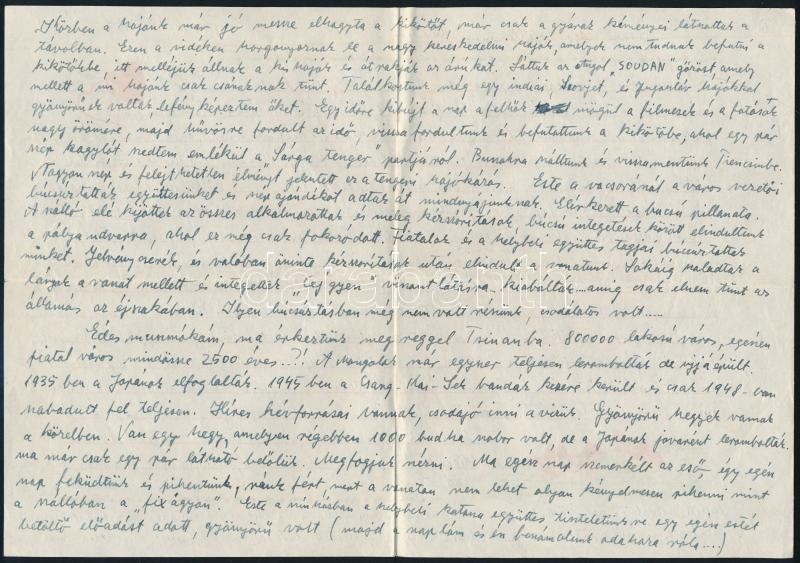 Közben a hajónk már jó messze elhagyta a kikötőt, már csak a gyárak kéményei látszottak a
távolban. Ezen a vidéken horgonyoznak le a nagy kereskedelmi hajók, amelyek nem tudnak befutni a
kikötőkbe, itt melléjük állnak a kis hajók és átrakják az árukat. Láttuk az angol "SOUDAN" gőzöst, amely
mellett a mi hajónk csak csónaknak tűnt. Találkoztunk még egy indiai, Szovjet, és Jugoszláv hajókkal
gyönyörűek voltak, lefényképeztem őket. Egy időre kibújt a nap a felhők mögül a filmesek és a fotósok
nagy örömére, majd hűvösre fordult az idő, visszafordultunk és befutottunk a kikötőbe, ahol egy pár
szép kagylót szedtem emlékül a "Sárga tenger" partjáról. Buszokra szálltunk és visszamentünk Tiencsinbe.
Nagyon szép és felejthetetlen élményt jelentett ez a tengeri hajókázás. Este a vacsoránál a város vezetői
búcsúztatták együttesünket és szép ajándékot adtak át mindnyájunknak. Elérkezett a búcsú pillanata.
A szálló elé kijöttek az összes alkalmazottak és meleg kézszorítások, búcsú integetések között elindultunk
a pályaudvarra, ahol ez még csak fokozódott. Fiatalok és a helybeli együttes tagjai búcsúztattak
minket. Jelvénycserék, és valóban őszinte kézszorítások után elindult vonatunk. Sokáig szaladtak a
lányok a vonat mellett és integettek "Caj gyen" viszontlátásra kiabálták.....amíg csak elnem tűnt az
állomás az éjszakában. Ilyen búcsúztatásban még nem volt részünk, csodálatos volt.....
Édes muszmókám, ma érkeztünk meg reggel Tsinanba. 800000 lakosú város, egészen
fiatal város mindössze 2500 éves...?! A Mongolok már egyszer teljesen lerombolták de újjáépült.
1935 ben a Japánok elfoglalták. 1945 ben a Csang-Kai-Sek bandák kezére került és csak 1948-ban
szabadult fel teljesen. Híres hévforrásai vannak, csodajó inni a vizük. Gyönyörű hegyek vannak
a közelben. Van egy hegy, amelyen régebben 1000 budha szobor volt, de a Japánok javarészt lerombolták
ma már csak egy pár látható belőlük. Megfogjuk nézni. Ma egész nap szemerkélt az eső, így egész
nap feküdtünk és pihentünk, ránk fért, mert a vonaton nem lehet olyan kényelmesen pihenni mint
a szállóban a "fix ágyon". Este a színházban a helybeli katona együttes tiszteletünkre egy egész estét
betöltő előadást adott, gyönyörű volt (majd a naplóm és én beszámolunk odahaza róla....)
darabanth